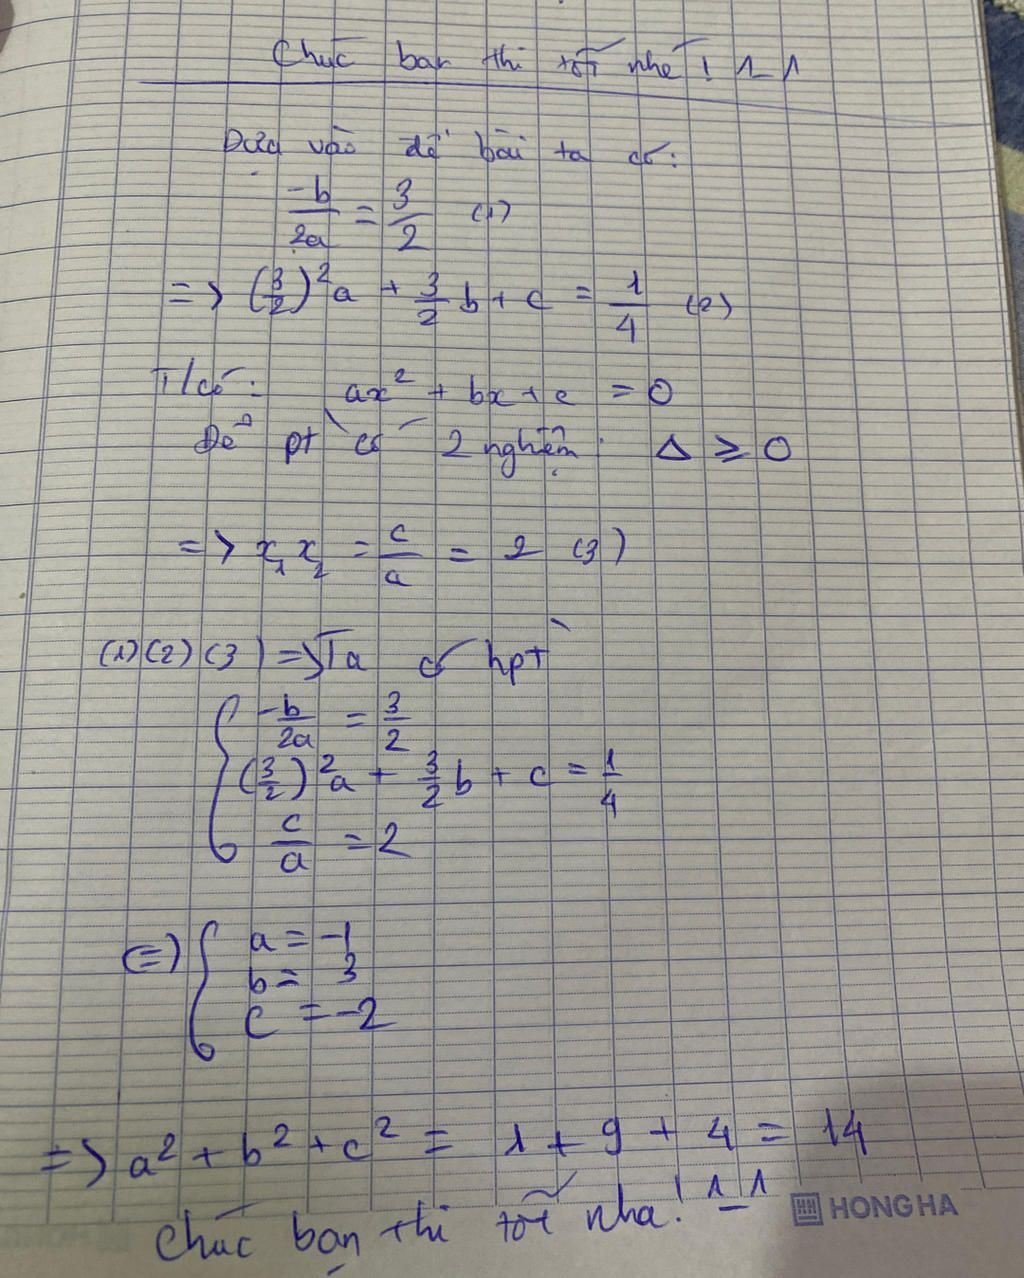 Chúc bạn thi tốt nhé! ^_^
Dựa vào đề bài ta có:
-b/2a = 3/2 (1)
=> (3/2)²a + 3/2 b + c = 1/4 (2)
T/có: ax² + bx + c = 0
Để pt có 2 nghiệm: Δ ≥ 0
=> x₁x₂ = c/a = 2 (3)
(1)(2)(3) => Ta có hpt
{ -b/2a = 3/2
(3/2)²a + 3/2 b + c = 1/4
c/a = 2
(=) { a = -1
b = 3
c = -2
=> a² + b² + c² = 1 + 9 + 4 = 14
Chúc bạn thi tốt nha! ^_^
HONG HA